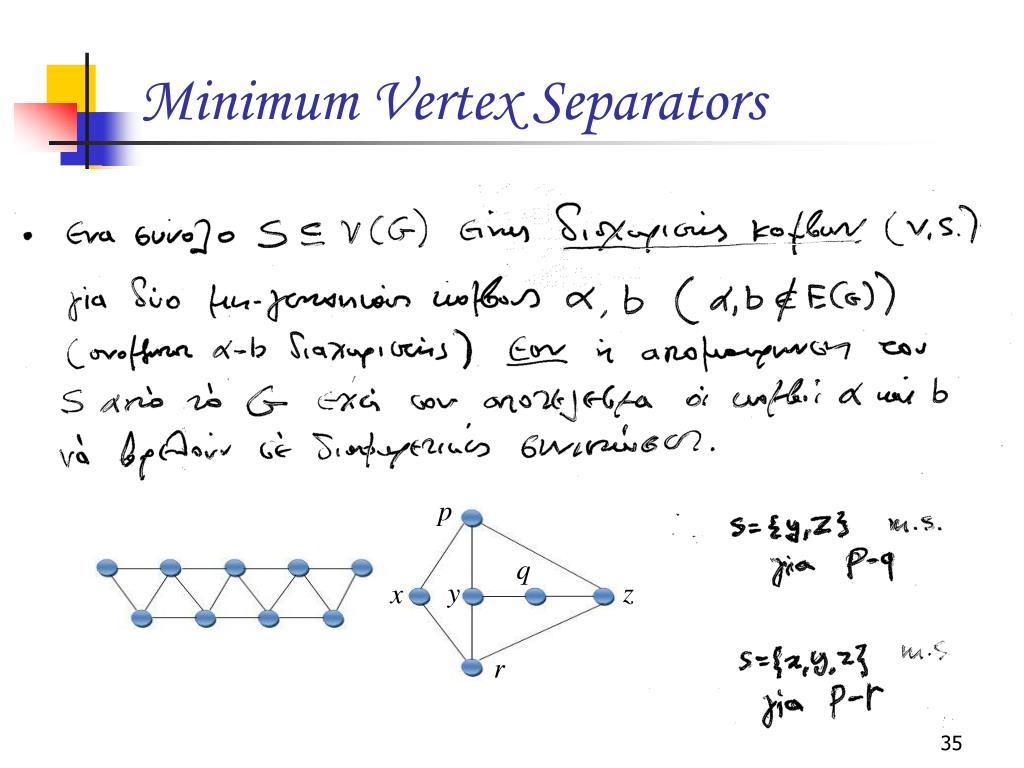 Minimum Vertex Separators
• Ενα συνολο S ⊆ V(G) είναι διαχωριστής κομβων (v.s.)
για δύο μη-γειτονικούς κομβους α, b (α,b ∉ E(G))
(ονομαση α-b διαχωριστής) εαν η απομακρυνση του
S από τό G έχει σαν αποτέλεσμα οι κομβοι α και b
νά βρεθούν σέ διαφορετικές συνιστώσες.
p
S={y,z} m.s.
για p-q
q
x y z
r
S={x,y,z} m.s
για p-r
35